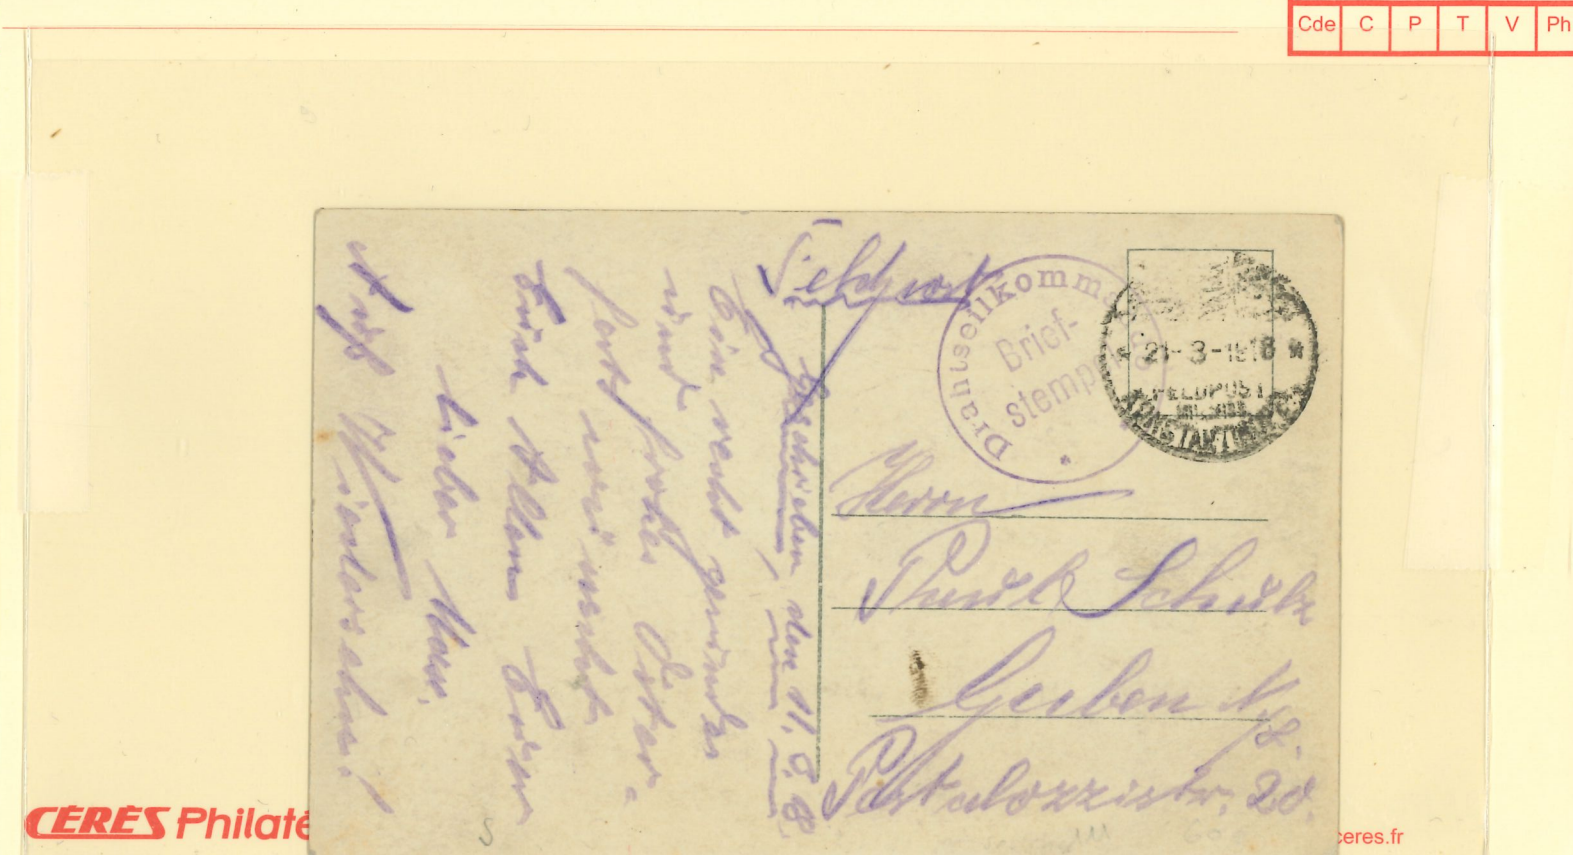 Cde C P T V Ph
Feldpost
Drahtseilkomma
Brief-
stempel
21-3-1918
FELDPOST
KONSTANTINOPEL
Herrn
Paul Schulz
Guben N/L.
Pestalozzistr. 20.
Geschrieben, den 11.3.18.
Ein recht gesundes
und
frohes Oster-
fest wünscht
Euch Allen Euer
lieber
Auf Wiedersehn!
CÉRÈS Philaté
ceres.fr